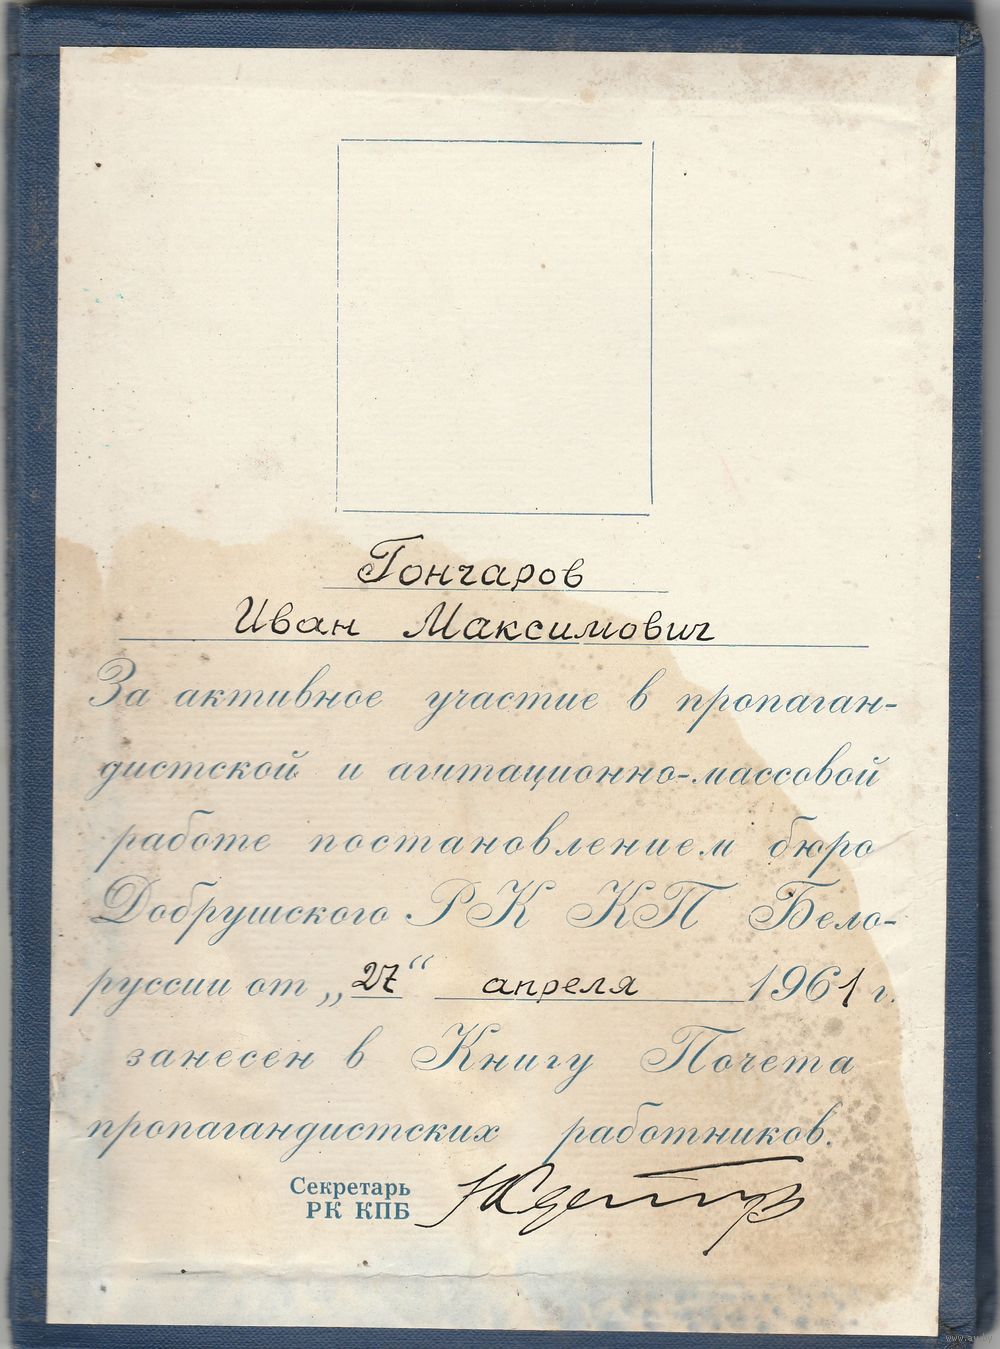 Гончаров
Иван Максимович
За активное участие в пропаган-
дистской и агитационно-массовой
работе постановлением бюро
Добрушского РК КП Бело-
руссии от „27“ апреля 1961 г.
занесен в Книгу Почета
пропагандистских работников.
Секретарь
РК КПБ